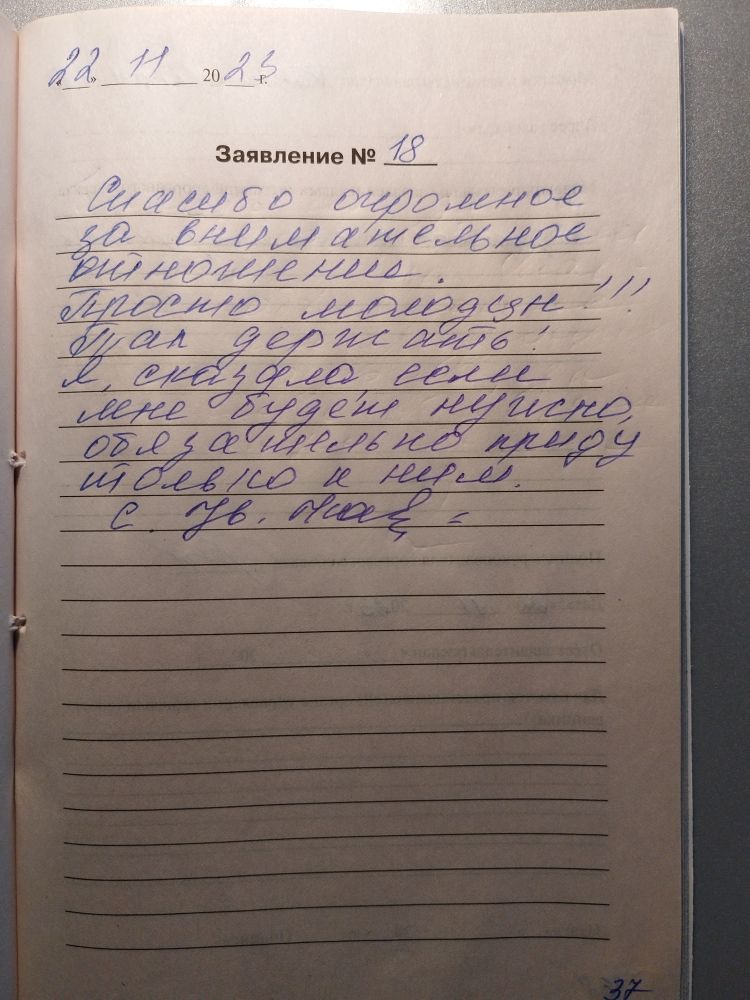 «22» 11 2023 г.
Заявление № 18
Спасибо огромное
за внимательное
отношение.
Просто молодцы!!!
Так держать!
Я, сказала, если
мне будет нужно,
обязательно приду
только к ним.
с. Ув.
37